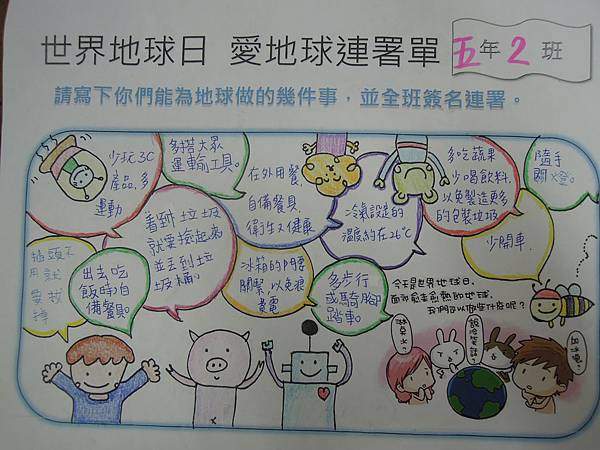 世界地球日 愛地球連署單 五年2班
請寫下你們能為地球做的幾件事，並全班簽名連署。
少玩3C
產品,多
運動
多搭大眾
運輸工具。
看到垃圾
就要撿起來
並丟到垃
圾桶。
在外用餐,
自備餐具,
衛生又健康
冷氣設定的
溫度約在26℃
多吃蔬果
少喝飲料,
以免製造更多
的包裝垃圾
隨手
關燈。
少開車.
插頭不
用就
要拔
掉
出去吃
飯時自
備餐具。
冰箱的門要
關緊,以免浪
費電
多步行
或騎腳
踏車。
今天是世界地球日,
面對愈來愈熱的地球,
我們可以做些什麼呢？
說冷笑話？